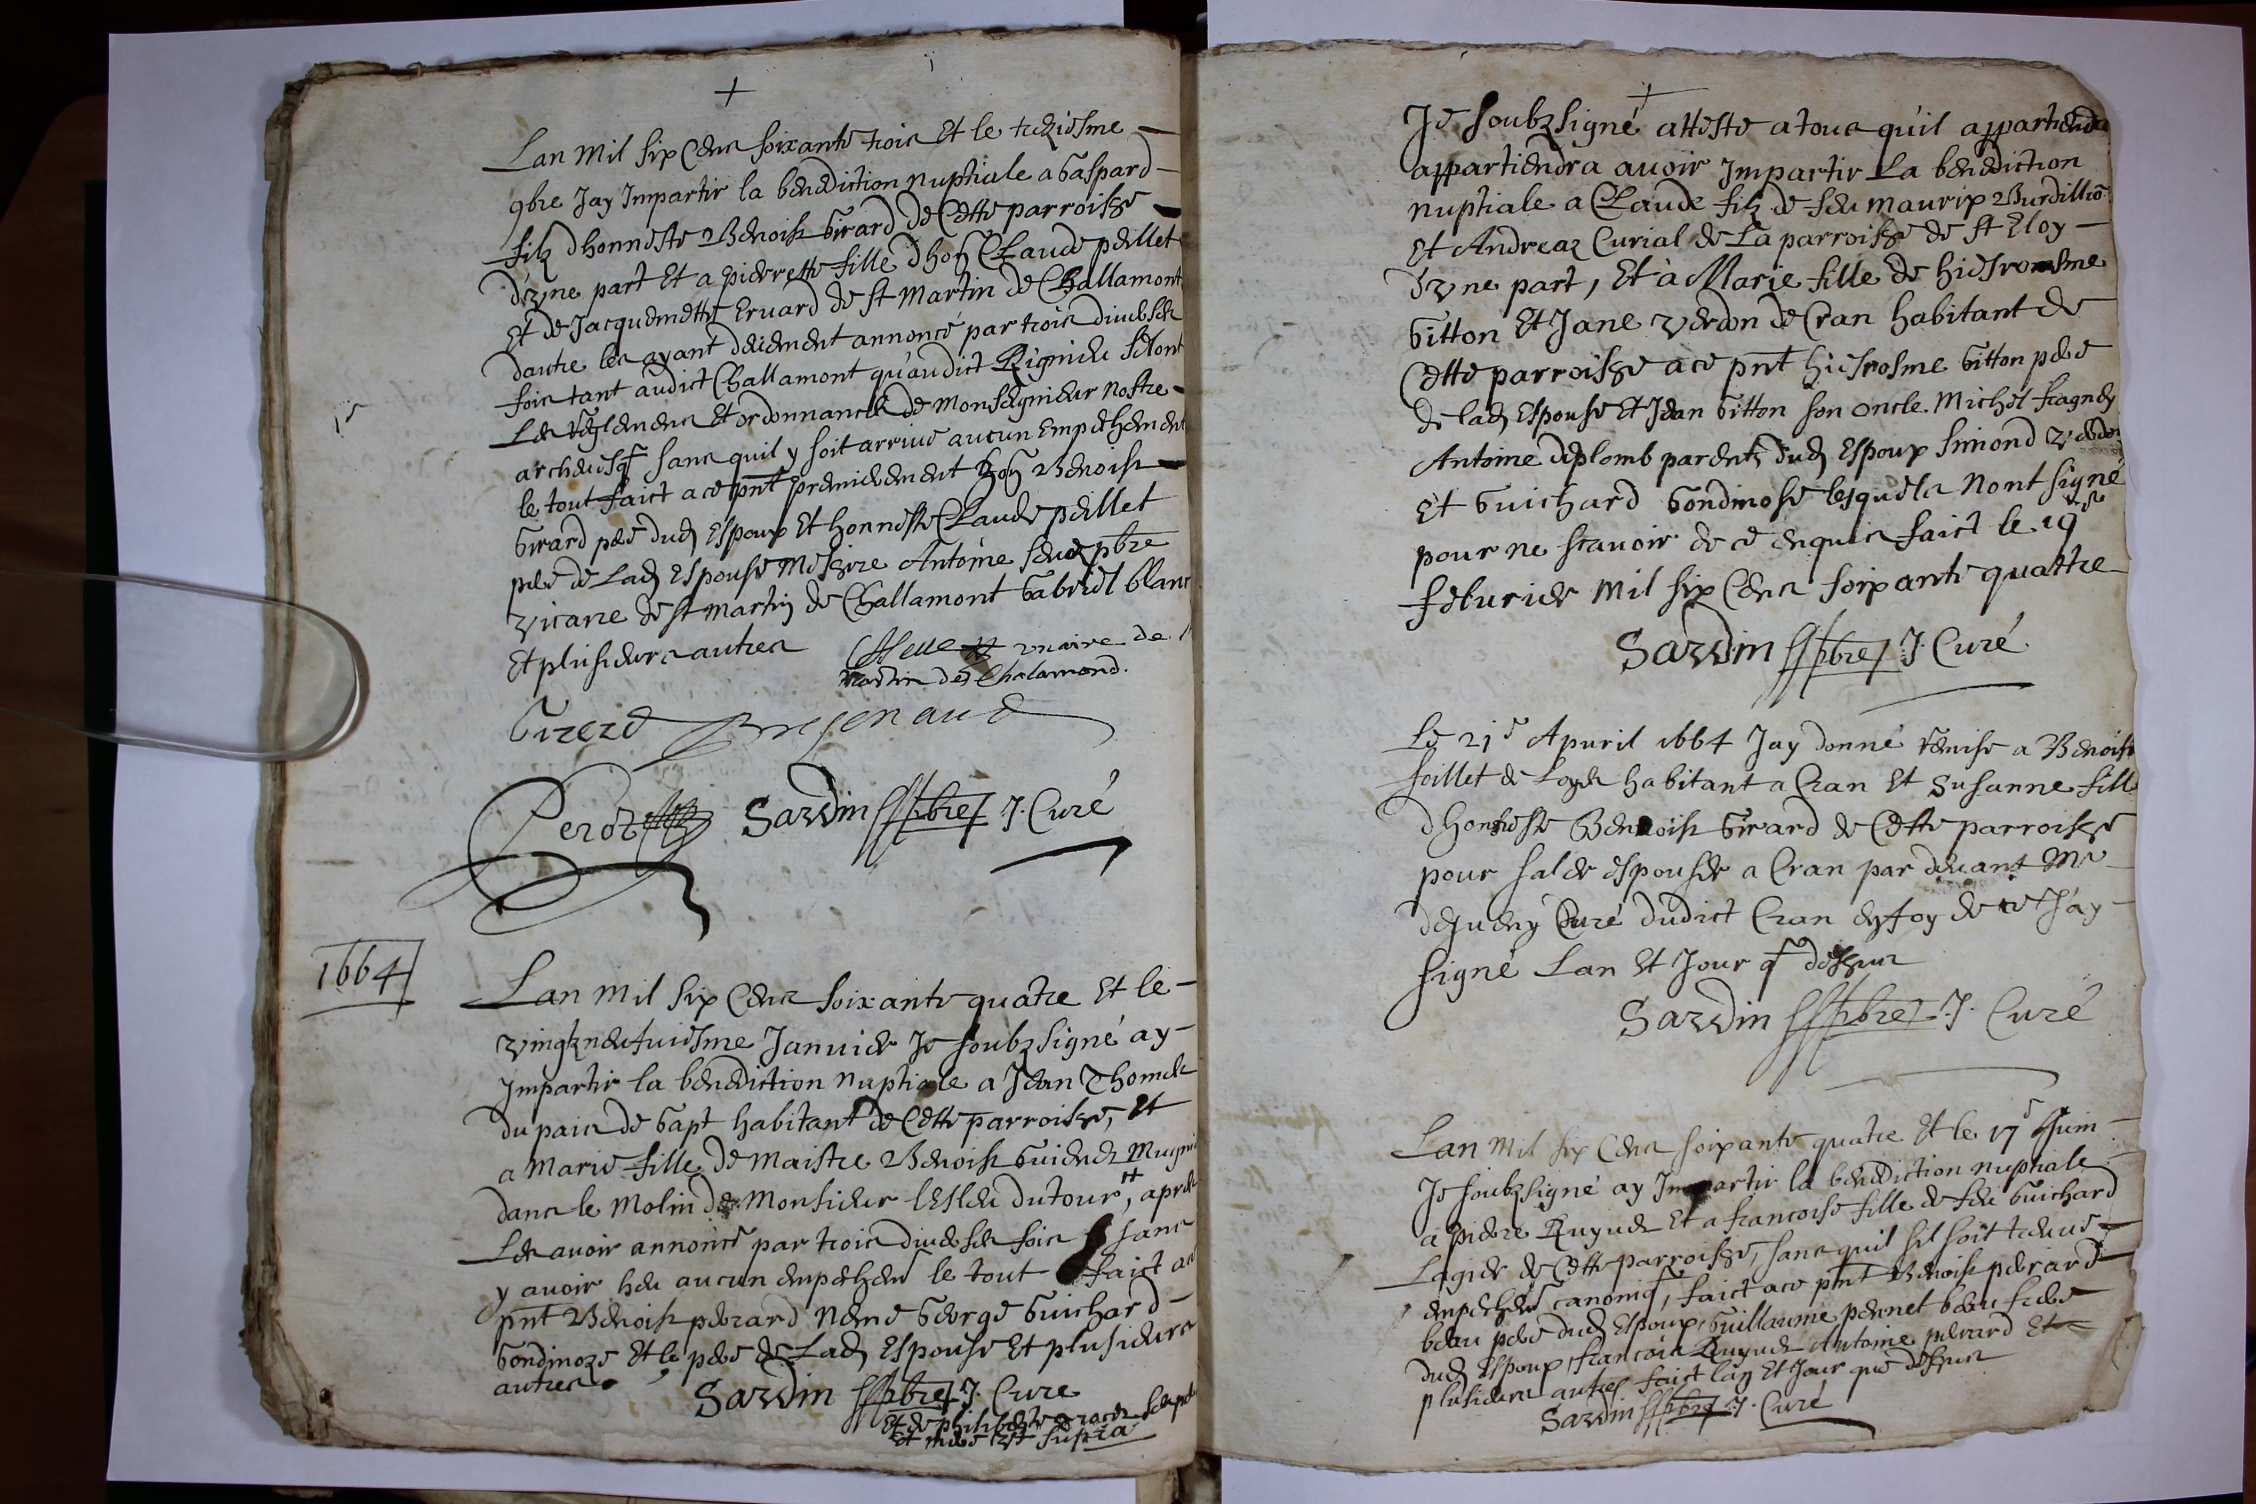 Lan mil six Cens soixante trois Et le treziesme
9bre Jay Impartir la benediction nuptiale a Gaspard
filz dhonneste Benoist Girard de Cette parroisse
d'vne part Et a pierrette fille dhon Claude peillet
Et de Jacquemette Eruard de st Martin de Challamont
dautre les ayant deuement annoncé par trois diuerses
fois tant audict Challamont qu'audict Rignieu selont
Les reglemens Et ordonnances de Monseignieur nostre
archeuesq sans quil y soit arriué aucun Empechement
le tout faict a ce pnt premierement hon Benoist
Girard pere dud Espoux Et honneste Claude peillet
pere de Lad Espouse Messire Antoine pbre
vicaire de st martin de Challamont Gabriel blanc
Et plusieurs autres
vicaire de
martin de Chalamond.
Girerd
Perot Sardin pbre J. Curé
1664
Lan mil six Cens soixante quatre Et le
vingtzneufuiesme Januier Je soubzsigné ay
Impartir la benediction nuptiale a Jean Thomes
du pais de Gapt habitant de Cette parroisse, Et
a Marie fille de Maistre Benoist Guienet
dans le Molin de Monsieur l'Esleu dutour, apres
Les auoir annoncé par trois diuerses fois sans
y auoir heu aucun empechem le tout faict a ce
pnt Benoist perrard George Guichard
Gondinoze Et le pere de Lad Espouse Et plusieurs
autres
Sardin pbre J. Cure
Et de philiberte
Et mere vt supra
Je soubzsigné atteste a tous qu'il appartiendra
appartiendra auoir Impartir La benediction
nuptiale a Claude filz de feu maurix Burdillio
Et Andreaz Curial de La parroisse de st Eloy
d'vne part, Et à Marie fille de hierosme
Gitton Et Jane verdon de Cran habitant de
Cette parroisse a ce pnt hierosme Gitton pere
de lad Espouse Et Jean Gitton son oncle. Michel fragney
Antoine deplomb parents dud Espoux Simond verdon
Et Guichard Gondinose lesquels Nont signé
pour ne scauoir de ce enquis faict le 19e
feburier mil six Cens soixante quattre
Sardin pbre J. Curé
Le 21e Apuril 1664 Jay donné remise a Benoist
foillet de Loyes habitant a Cran Et Susanne fille
d'honneste Benoist Girard de Cette parroisse
pour saler espouser a Cran par deuant Mre
Curé dudict Cran en foy de ce Jay
signé Lan Et Jour q dessus
Sardin pbre J. Curé
Lan mil six Cens soixante quatre Et le 17e Juin
Je soubzsigné ay Impartir la benediction nuptiale
a pierre Ruyuet Et a francoise fille de feu Guichard
Lagier de Cette parroisse, sans quil sil soit treuué
empechem canoniq, faict a ce pnt Benoist perrard
beau pere dud Espoux, Guillaume peunet beau frere
dud Espoux, francois Ruyuet Antoine perrard Et
plusieurs autres faict lan Et Jour que dessus
Sardin pbre J. Curé